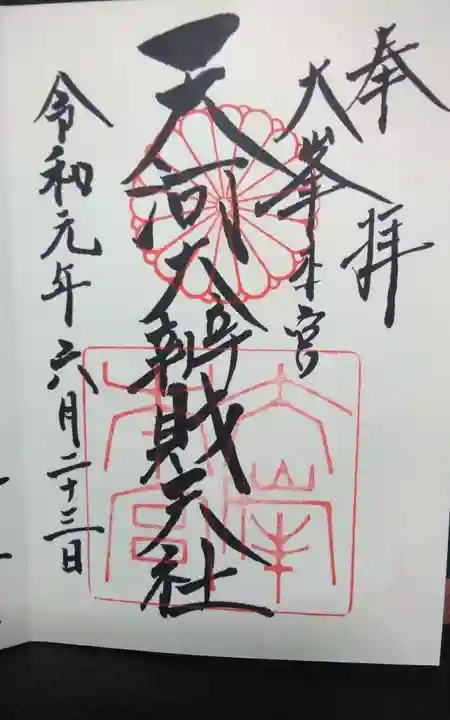 奉拝
大峯本宮
天河大辨財天社
令和元年六月二十三日
大峯本宮